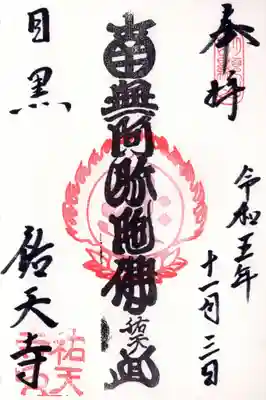 奉拝
令和五年
十一月三日
南無阿弥陀佛
祐天
目黒
祐天寺